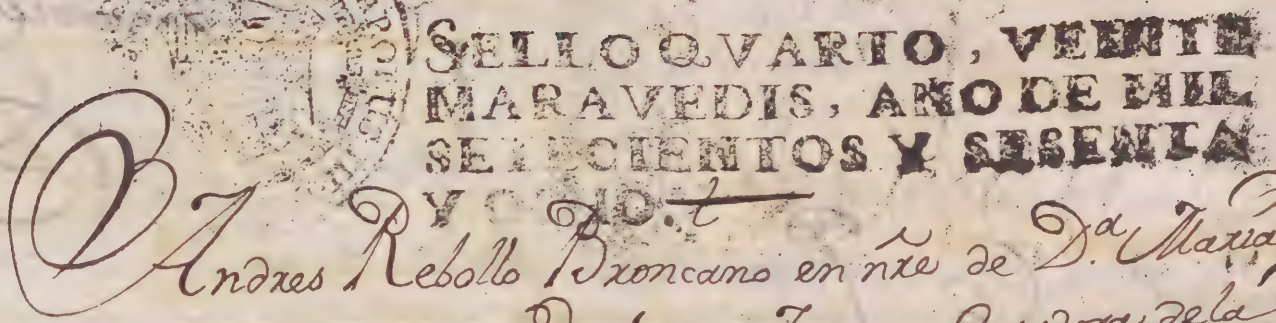 SELLO QVARTO, VEINTE
MARAVEDIS, AÑO DE MIL
SETECIENTOS Y SESENTA
Y OCHO.
Andres Rebollo Broncano en nře de D.ª Maria
de la